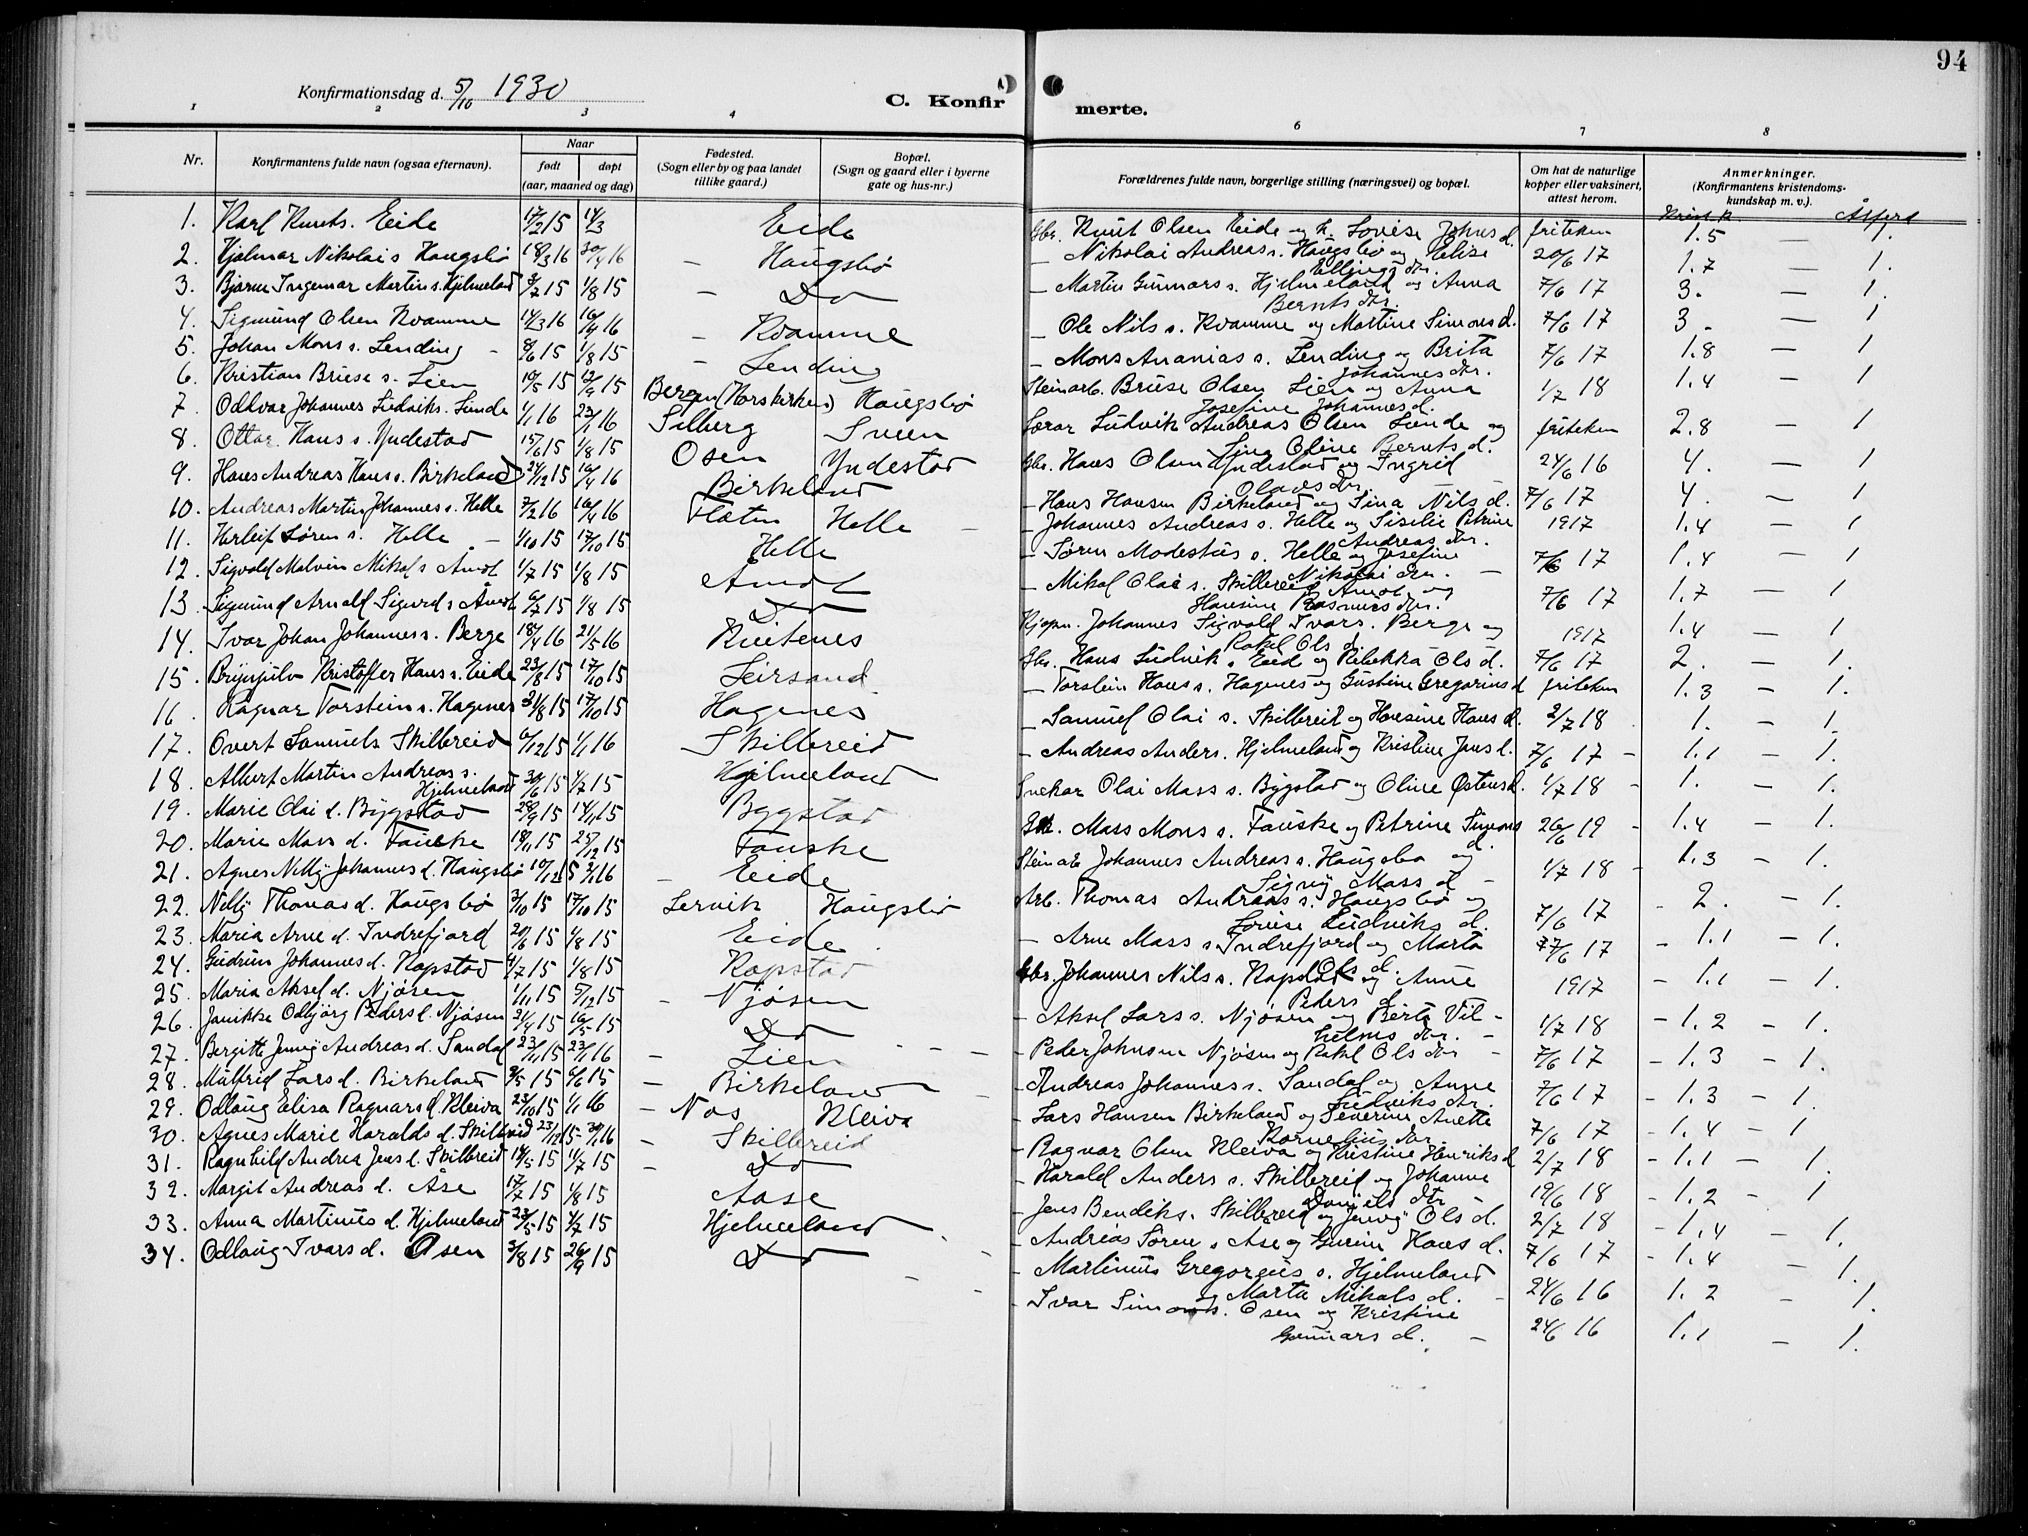 94
Konfirmationsdag d. 5/10 1930
C. Konfir
merte.
1 2 3 4 6 7 8
Nr.
Konfirmantens fulde navn (ogsaa efternavn).
Naar
født døpt
(aar, maaned og dag)
Fødested.
(Sogn eller by og paa landet
tillike gaard.)
Bopæl.
(Sogn og gaard eller i byerne
gate og hus-nr.)
Forældrenes fulde navn, borgerlige stilling (næringsvei) og bopæl.
Om hat de naturlige
kopper eller vaksinert,
attest herom.
Anmerkninger.
(Konfirmantens kristendoms-
kundskap m. v.).
1. Karl Knuts. Eide 17/2 15 14/3 Eide
2. Hjalmar Nikolai s Haugsbø 18/3 16 30/4 16 - Haugsbø
3. Bjarne Ingemar Martin s. Hjelmeland 3/7 15 1/8 15 - Do
4. Sigmund Olsen Kvamme 14/3 16 16/4 16 - Kvamme
5. Johan Mons s. Lending 8/6 15 1/8 15 - Lending
6. Kristian Briese s. Lien 19/5 15 12/9 15 Bergen (Korskirken) Haugsbø
7. Oddvar Johannes Ludviks. Sunde 1/1 16 23/1 16 Silberg Sveen
8. Ottar Hans s. Yndestad 15/6 15 1/8 15 Osen Yndestad
9. Hans Andreas Hans s. Birkeland 24/12 15 16/4 16 Birkeland
10. Andreas Martin Johannes s. Helle 7/2 16 16/4 16 Flaten Helle
11. Herleif Søren s. Helle 1/10 15 17/10 15 Helle
12. Sigvald Malvin Mikal s Åmot 1/7 15 1/8 15 Åmot
13. Sigmund Arnald Sigurd s Åmot 6/7 15 1/8 15 Do
14. Ivar Johan Johannes s. Berge 18/4 16 21/5 16
15. Brynjulv Kristoffer Hans s. Eide 23/8 15 17/10 15 Leirsand
16. Ragnar Torstein s. Hagenes 31/8 15 17/10 15 Hagenes
17. Overt Samuels Skilbreid 6/12 15 1/1 16 Skilbreid
18. Albert Martin Andreas s. Hjelmeland 30/6 15 4/7 15 Hjelmeland
19. Marie Olai d. Bygstad 28/9 15 14/11 15 Bygstad
20. Marie Mass d. Fauske 18/11 15 25/12 15 Fauske
21. Agnes Nelly Johannes d. Haugsbø 10/12 15 2/1 16 - Eide
22. Nelly Thomas d. Haugsbø 3/10 15 17/10 15 Lervik Haugsbø
23. Maria Arne d. Indrefjord 20/6 15 1/8 15 Eide
24. Gudrun Johannes d. Rapstad 4/7 15 1/8 15 Rapstad
25. Maria Aksel d. Njøsen 1/11 15 5/12 15 - Njøsen
26. Janikke Odbjørg Peders d. Njøsen 21/4 15 16/5 15 Do
27. Bergitte Jenny Andreas d. Sandal 23/11 15 23/1 16 - Lien
28. Målfrid Lars d. Birkeland 2/5 15 6/6 15 - Birkeland
29. Odlaug Elisa Ragnars d. Kleiva 23/10 15 1/1 16 - Nos Kleiva
30. Agnes Marie Haralds d. Skilbreid 23/12 15 - 30/1 16 - Skilbreid
31. Ragnhild Andrea Jens d. Skilbreid 14/5 15 4/7 15 - Do
32. Margit Andreas d. Åse 17/7 15 1/8 15 Aase
33. Anna Martinus d. Hjelmeland 23/5 15 4/7 15 Hjelmeland
34. Odlaug Ivars d. Osen 3/8 15 26/9 15 Do
Krist.k. Åtferd
Gbr. Knut Olsen Eide og h. Lovise Johns d. friteken 1.5 - 1.
- Nikolai Andreas s. Haugsbø og Elise Ellings dtr. 20/6 17 1.7 - 1.
- Martin Gunnars s. Hjelmeland og Anna Bernts dtr. 7/6 17 3. - 1.
- Ole Nils s. Kvamme og Martine Simons d. 7/6 17 3. - 1
- Mons Ananias s. Lending og Brita Johannes dtr. 7/6 17 1.8 - 1
Steinarb. Briese Olsen Lien og Anna Josefine Johannes d. 1/7 18 1.4 - 1
Lærar Ludvik Andreas Olsen Sunde og Lina Oline Bernts d. friteken 2.8 - 1
Gbr. Hans Olsen Yndestad og Ingrid Olavs dtr. 24/6 16 4. - 1
- Hans Hansen Birkeland og Sina Nils d. 7/6 17 4. - 1
- Johannes Andreas s. Helle og Sisilie Petrine Andreas dtr. 1917 1.4 - 1
- Søren Modestus s. Helle og Josefine Nikolai dtr. - 7/6 17 1.4 - 1
- Mikal Olai s. Skilbreid Åmot og Hansine Rasmus dtr. 7/6 17 1.7 - 1
Kjøpm. Johannes Sigvald Ivars. Berge og Rakel Ols d. 1917 1.4 - 1
Gbr. Hans Ludvik s Eid og Rebekka Ols d. 7/6 17 2. - 1.
- Torstein Hans s. Hagenes og Gustine Gregorius d friteken 1.3 - 1.
- Samuel Olai s. Skilbreid og Hansine Hans d. 2/7 18 1. - 1.
- Andreas Anders. Hjelmeland og Kristine Jens d. 7/6 17 - 1.1 - 1.
Snekar Olai Mass s. Bygstad og Oline Østens d. 1/7 18 - 1. - 1.
Gbr. Mass Mons s. Fauske og Petrine Simons d. 26/6 19 - 1.4 - 1.
Steinarb Johannes Andreas s. Haugsbø og Signy Mass d - 1/7 18 - 1.3 - 1.
Arb. Thomas Andreas s. Haugsbø og Lovise Ludviks d. 7/6 17 - 2. - 1.
- Arne Mass s Indrefjord og Marta Ols d. 7/6 17 - 1.1 - 1.
Gbr. Johannes Nils s. Rapstad og Anne Peders d. 1917 - 1.1 - 1.
- Aksel Lars s. Njøsen og Berte Vil- helms dtr. - 1/7 18 - 1.2 - 1.
- Peder Johnsen Njøsen og Rakel Ols dtr - 7/6 17 - 1.3 - 1.
- Andreas Johannes s. Sandal og Anne Ludviks dtr. 7/6 17 - 1.3 - 1.
- Lars Hansen Birkeland og Severine Anette Kornelius dtr 7/6 17 - 1.4 - 1
- Ragnar Olsen Kleiva og Kristine Henriks d 2/7 18 - 1.1 - 1.
- Harald Anders s. Skilbreid og Johanne Daniels dtr 19/6 18 - 1.2 - 1
- Jens Bendiks. Skilbreid og Jenny Ols d. 2/7 18 - 1.4 - 1.
- Andreas Søren s Åse og Gurine Hans d. 7/6 17 - 1.4 - 1.
- Martinus Gregorius s. Hjelmeland og Marta Mikals d. - 24/6 16 1.2 - 1.
- Ivar Simons. Osen og Kristine Gunnars d. - 24/6 16 1.1 - 1.